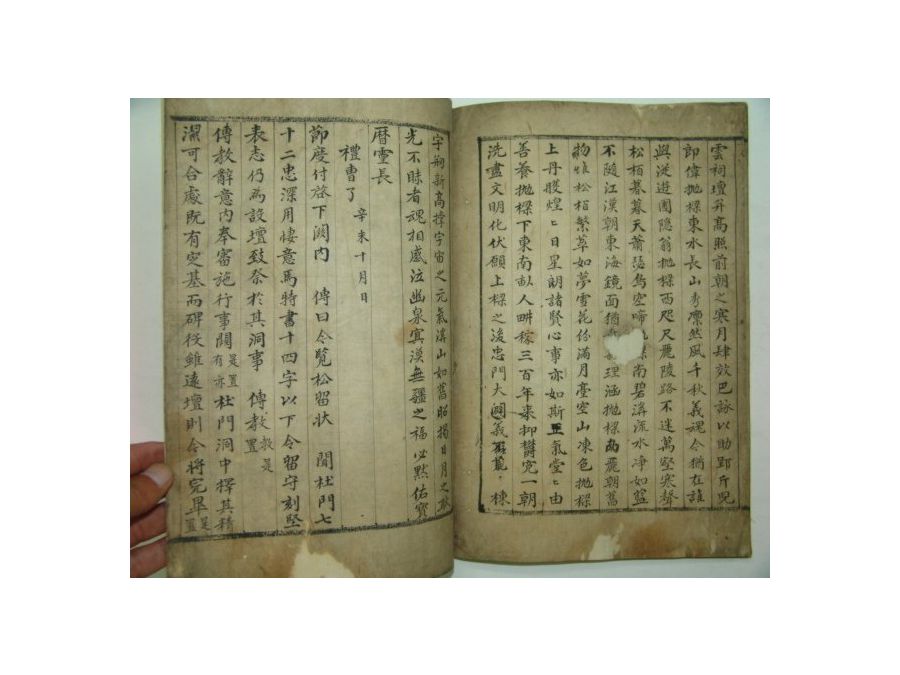 雲祠壇并高照前朝之寒月肆敢巴詠以助郢斤兒
郎偉抛樑東水長山秀凛然風千秋義魂今猶在誰
與從遊圃隱翁抛樑西咫尺麗陵路不迷萬壑寒聲
松栢暮暮天蕭瑟鳥空啼抛樑南碧溪流水净如藍
不隨江漢朝東海鏡面猶 理涵抛樑北麗朝舊
物惟松栢繁草如夢雪花份滿月臺空山凍色抛樑
上丹臒煌〻日星朗諸賢心事亦如斯正氣堂〻由
善養抛樑下東南畝人畊稼三百年來抑欝寃一朝
洗盡文明化伏願上樑之後忠門大闢義 棟
宇剙新高撑宇宙之元氣溪山如舊昭揭日月之
光不昧者魂相感泣幽泉寞漠無疆之福必默佑寳
曆靈長
禮曹了 辛未十月日
節度付啓下関内 傳曰今覽松留狀 聞杜門七
十二忠深用悽意馬特書十四字以下令留守刻竪
表志仍為設壇致祭於其洞事 傳教教是置
傳教辭意内奉審施行事関是置有亦杜門洞中擇其精
潔可合處既有定基而碑役雖遠壇則今將完畢是置